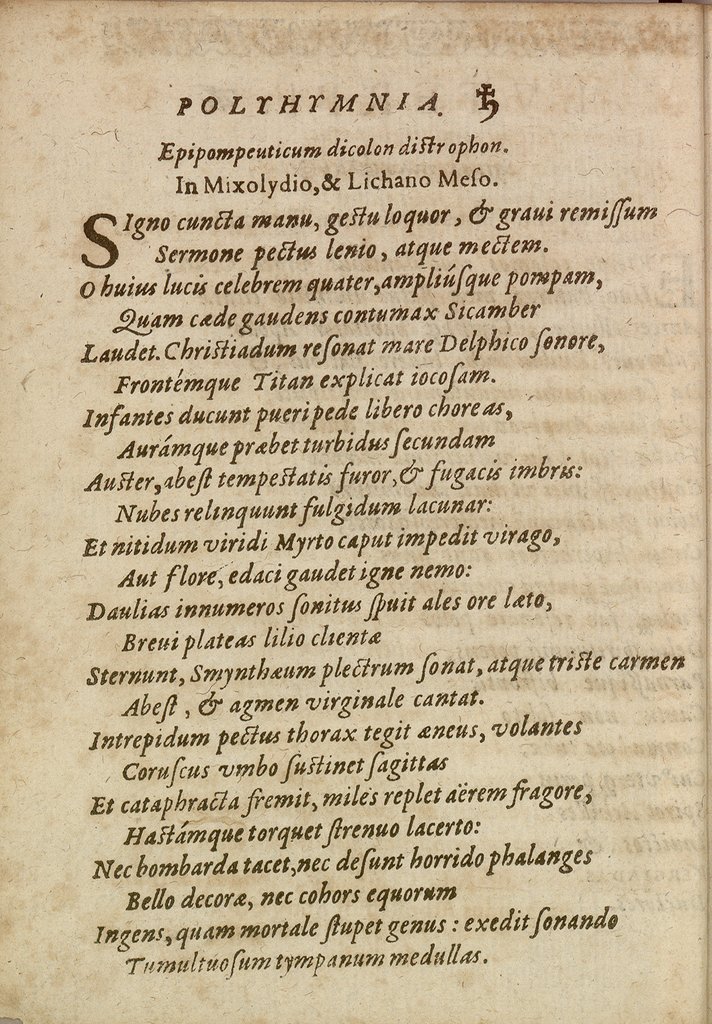 POLYHYMNIA. ♄
Epipompeuticum dicolon distrophon.
In Mixolydio, & Lichano Meſo.
SIgno cuncta manu, geſtu loquor, & graui remiſſum
Sermone pectus lenio, atque mectem.
O huius lucis celebrem quater, ampliúſque pompam,
Quam cæde gaudens contumax Sicamber
Laudet. Chriſtiadum reſonat mare Delphico ſonore,
Frontémque Titan explicat iocoſam.
Infantes ducunt pueri pede libero choreas,
Aurámque præbet turbidus ſecundam
Auſter, abeſt tempeſtatis furor, & fugacis imbris:
Nubes relinquunt fulgidum lacunar:
Et nitidum viridi Myrto caput impedit virago,
Aut flore, edaci gaudet igne nemo:
Daulias innumeros ſonitus ſpuit ales ore læto,
Breui plateas lilio clientæ
Sternunt, Smynthæum plectrum ſonat, atque triſte carmen
Abeſt, & agmen virginale cantat.
Intrepidum pectus thorax tegit æneus, volantes
Coruſcus vmbo ſuſtinet ſagittas
Et cataphracta fremit, miles replet aërem fragore,
Haſtámque torquet ſtrenuo lacerto:
Nec bombarda tacet, nec deſunt horrido phalanges
Bello decoræ, nec cohors equorum
Ingens, quam mortale ſtupet genus: exedit ſonando
Tumultuoſum tympanum medullas.